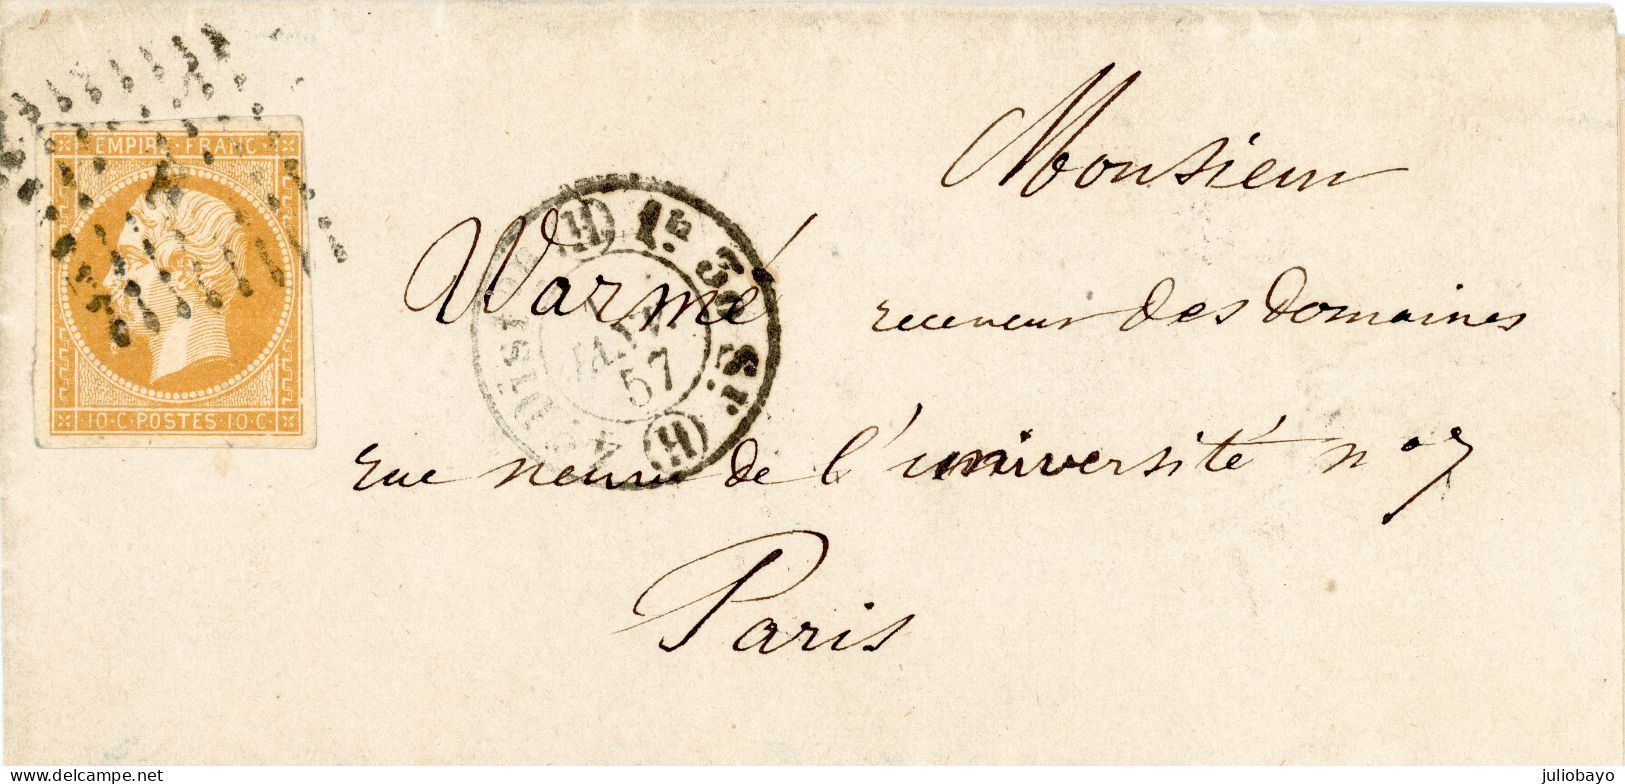 EMPIRE · FRANC
10 · C · POSTES · 10 · C ·
Monsieur
Warmé
receveur des domaines
rue neuve de l'université n° 7
Paris
(H) 1re 3e Sr. (H)
JANV.
57
delcampe.net
juliobayo